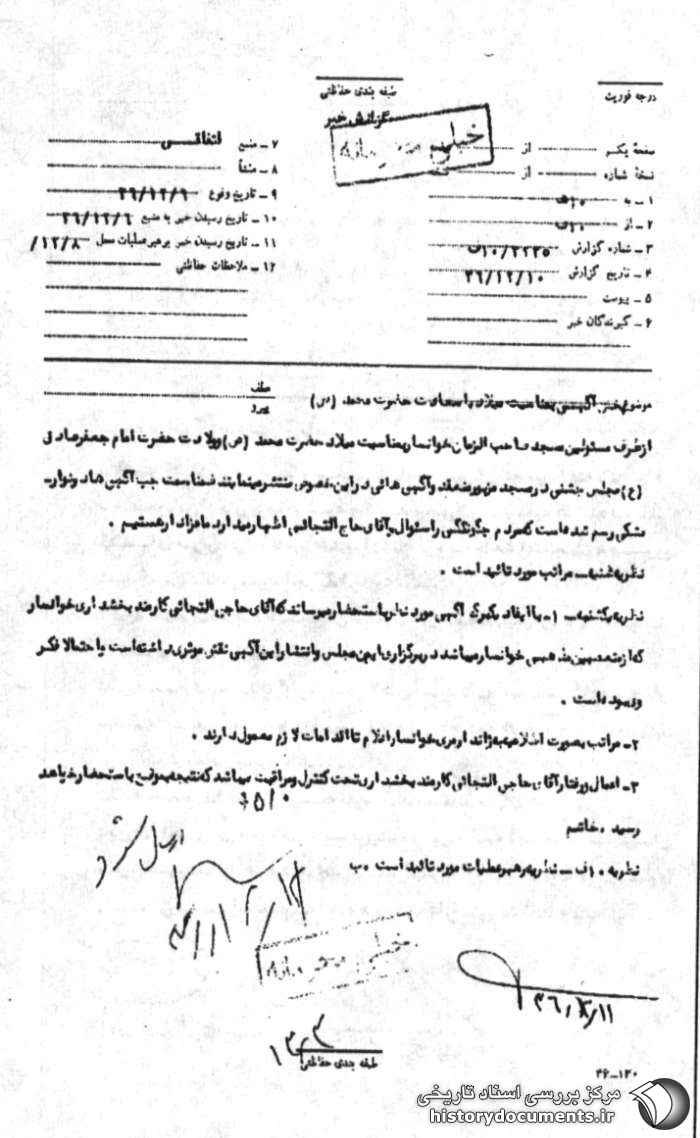 درجه فوریت
طبقه بندی حفاظتی
گزارش خبر
خیلی محرمانه
صفحه یکم از
نسخهٔ شماره از
۱ ـ به
۲ ـ از
۳ ـ شماره گزارش ۱۰/۲۲۳۵ف
۴ ـ تاریخ گزارش ۳۶/۱۲/۱۰
۵ ـ پیوست
۶ ـ گیرندگان خبر
۷ ـ منبع
۸ ـ منشأ
۹ ـ تاریخ وقوع ۳۶/۱۲/۶
۱۰ ـ تاریخ رسیدن خبر به منبع ۳۶/۱۲/۶
۱۱ ـ تاریخ رسیدن خبر برهبر عملیات محل /۱۲/۸
۱۲ ـ ملاحظات حفاظتی
موضوع آگهی بمناسبت میلاد با سعادت حضرت محمد (ص)
عطف
پیرو
ازطرف مسئولین مسجد صاحب الزمان خوانسار بمناسبت میلاد حضرت محمد (ص) وولادت حضرت امام جعفرصادق
(ع) مجلس جشنی در مسجد مزبور منعقد وآگهی هائی دراین خصوص منتشر مینمایند ضمنا سمت چپ آگهی ها دونوار
مشکی رسم شده است که مردم چگونگی را سئوال وآقای حاج التجائی اظهار میدارد ماعزادار هستیم .
نظریه شنبه ـ مراتب مورد تائید است .
نظریه یکشنبه ـ ۱ ـ با ایفاد یکبرگ آگهی مورد نظر باستحضار میرساند که آقای حاجی التجائی کارمند بخشداری خوانسار
که از متعصبین مذهبی خوانسار میباشد در برگزاری این مجلس وانتشار این آگهی نقش موثری داشته است یا احتمالا فکر
وی بوده است .
۲ ـ مراتب بصورت اطلاعیه به ژاندارمری خوانسار اعلام تا اقدامات لازم معمول دارند .
۳ ـ اعمال ورفتار آقای حاجی التجائی کارمند بخشداری تحت کنترل ومراقبت میباشد که نتیجه بموقع باستحضار خواهد
رسید .
نظریه ۱۰ف ـ نظریه رهبر عملیات مورد تائید است . ب
ارسال شود
خیلی محرمانه
۳۶/۱۲/۱۱
طبقه بندی حفاظتی
۳۶ـ۱۲۰
مرکز بررسی اسناد تاریخی
historydocuments.ir